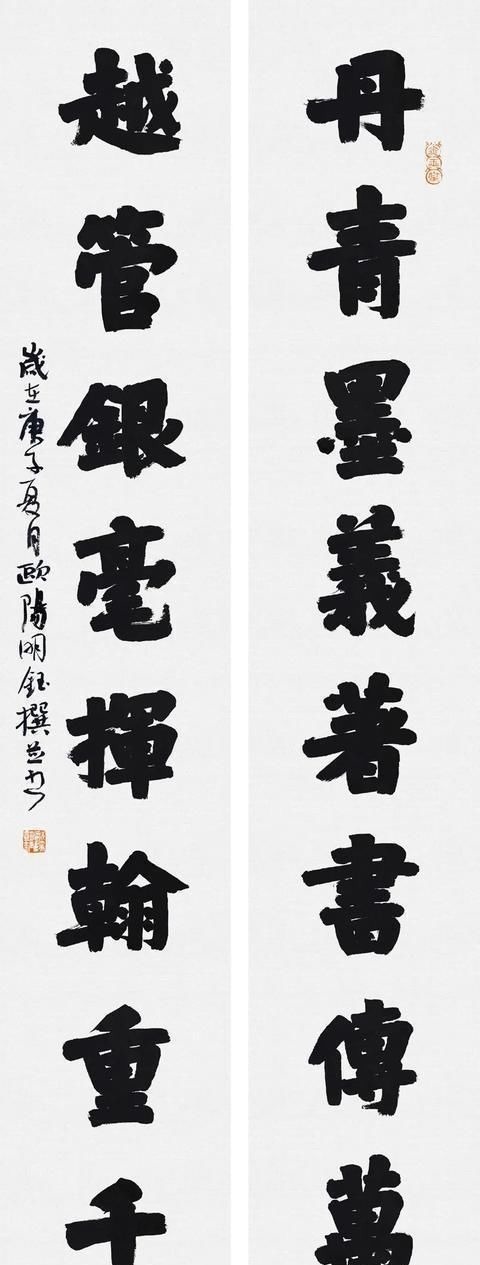 丹青墨義著書傳萬
越管銀毫揮翰重千
歲在庚子夏月歐陽明鈺撰並書